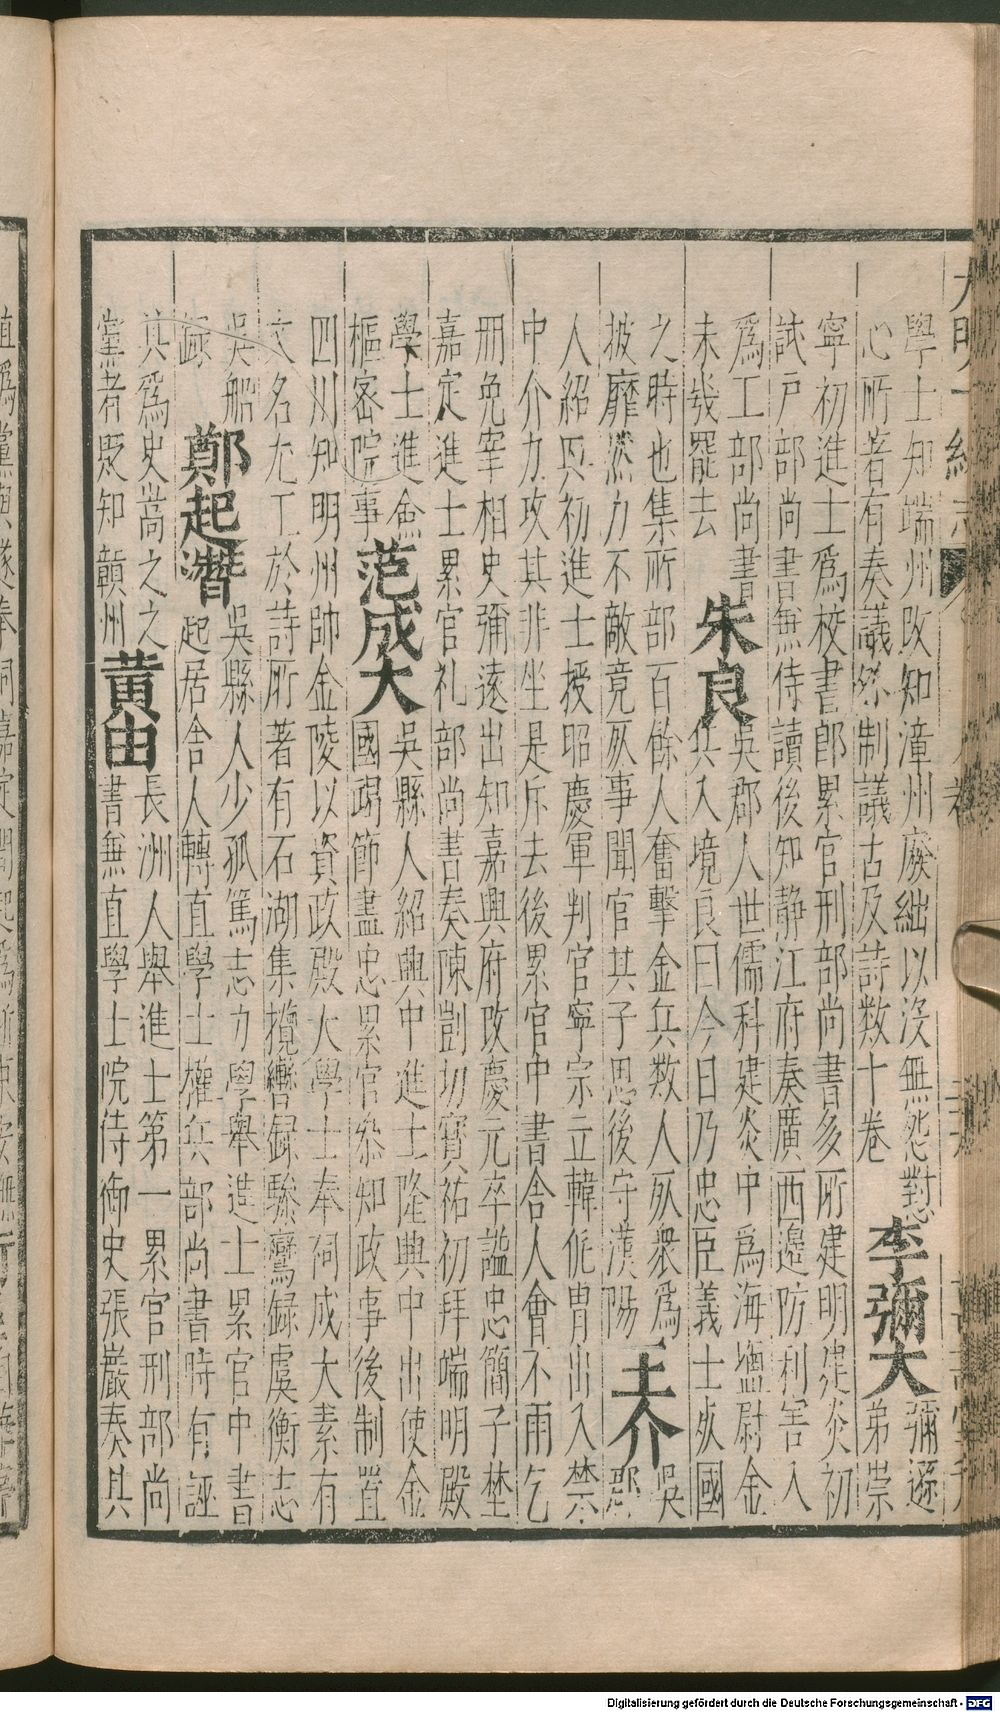 學士知端州改知漳州廢絀以沒無怨懟
心所著有奏議外制議古及詩数十卷
李彌大
彌遜
弟崇
寧初進士爲校書郎累官刑部尚書多所建明建炎初
試戸部尚書無侍讀後知靜江府奏廣西邊防利害入
爲工部尚書
未幾罷去
朱良
吳郡人世儒科建炎中爲海鹽尉金
兵入境良曰今日乃忠臣義士死國
之時也集所部百餘人奮擊金兵数人死衆爲
披靡然力不敵竟死事聞官其子思後守漢陽
王介
吳
郡
人紹興初進士授昭慶軍判官寧宗立韓侂胄出入禁
中介力攻其非坐是斥去後累官中書舍人會不雨乞
冊免宰相史彌遠出知嘉興府改慶元卒謚忠簡子埜
嘉定進士累官礼部尚書奏陳剴切寶祐初拜端明殿
學士進僉
樞密院事
范成大
吳縣人紹興中進士隆興中出使金
國竭節盡忠累官參知政事後制置
四川知明州帥金陵以資政殿大學士奉祠成大素有
文名尤工於詩所著有石湖集攬轡録驂鸞録虞衡志
吳船
録
鄭起潛
吳縣人少孤篤志力學舉進士累官中書
起居舍人轉直學士權兵部尚書時有誣
其爲史嵩之之
黨者貶知贛州
黄由
長洲人舉進士第一累官刑部尚
書無直學士院侍御史張巖奏其
Digitalisierung gefördert durch die Deutsche Forschungsgemeinschaft - DFG